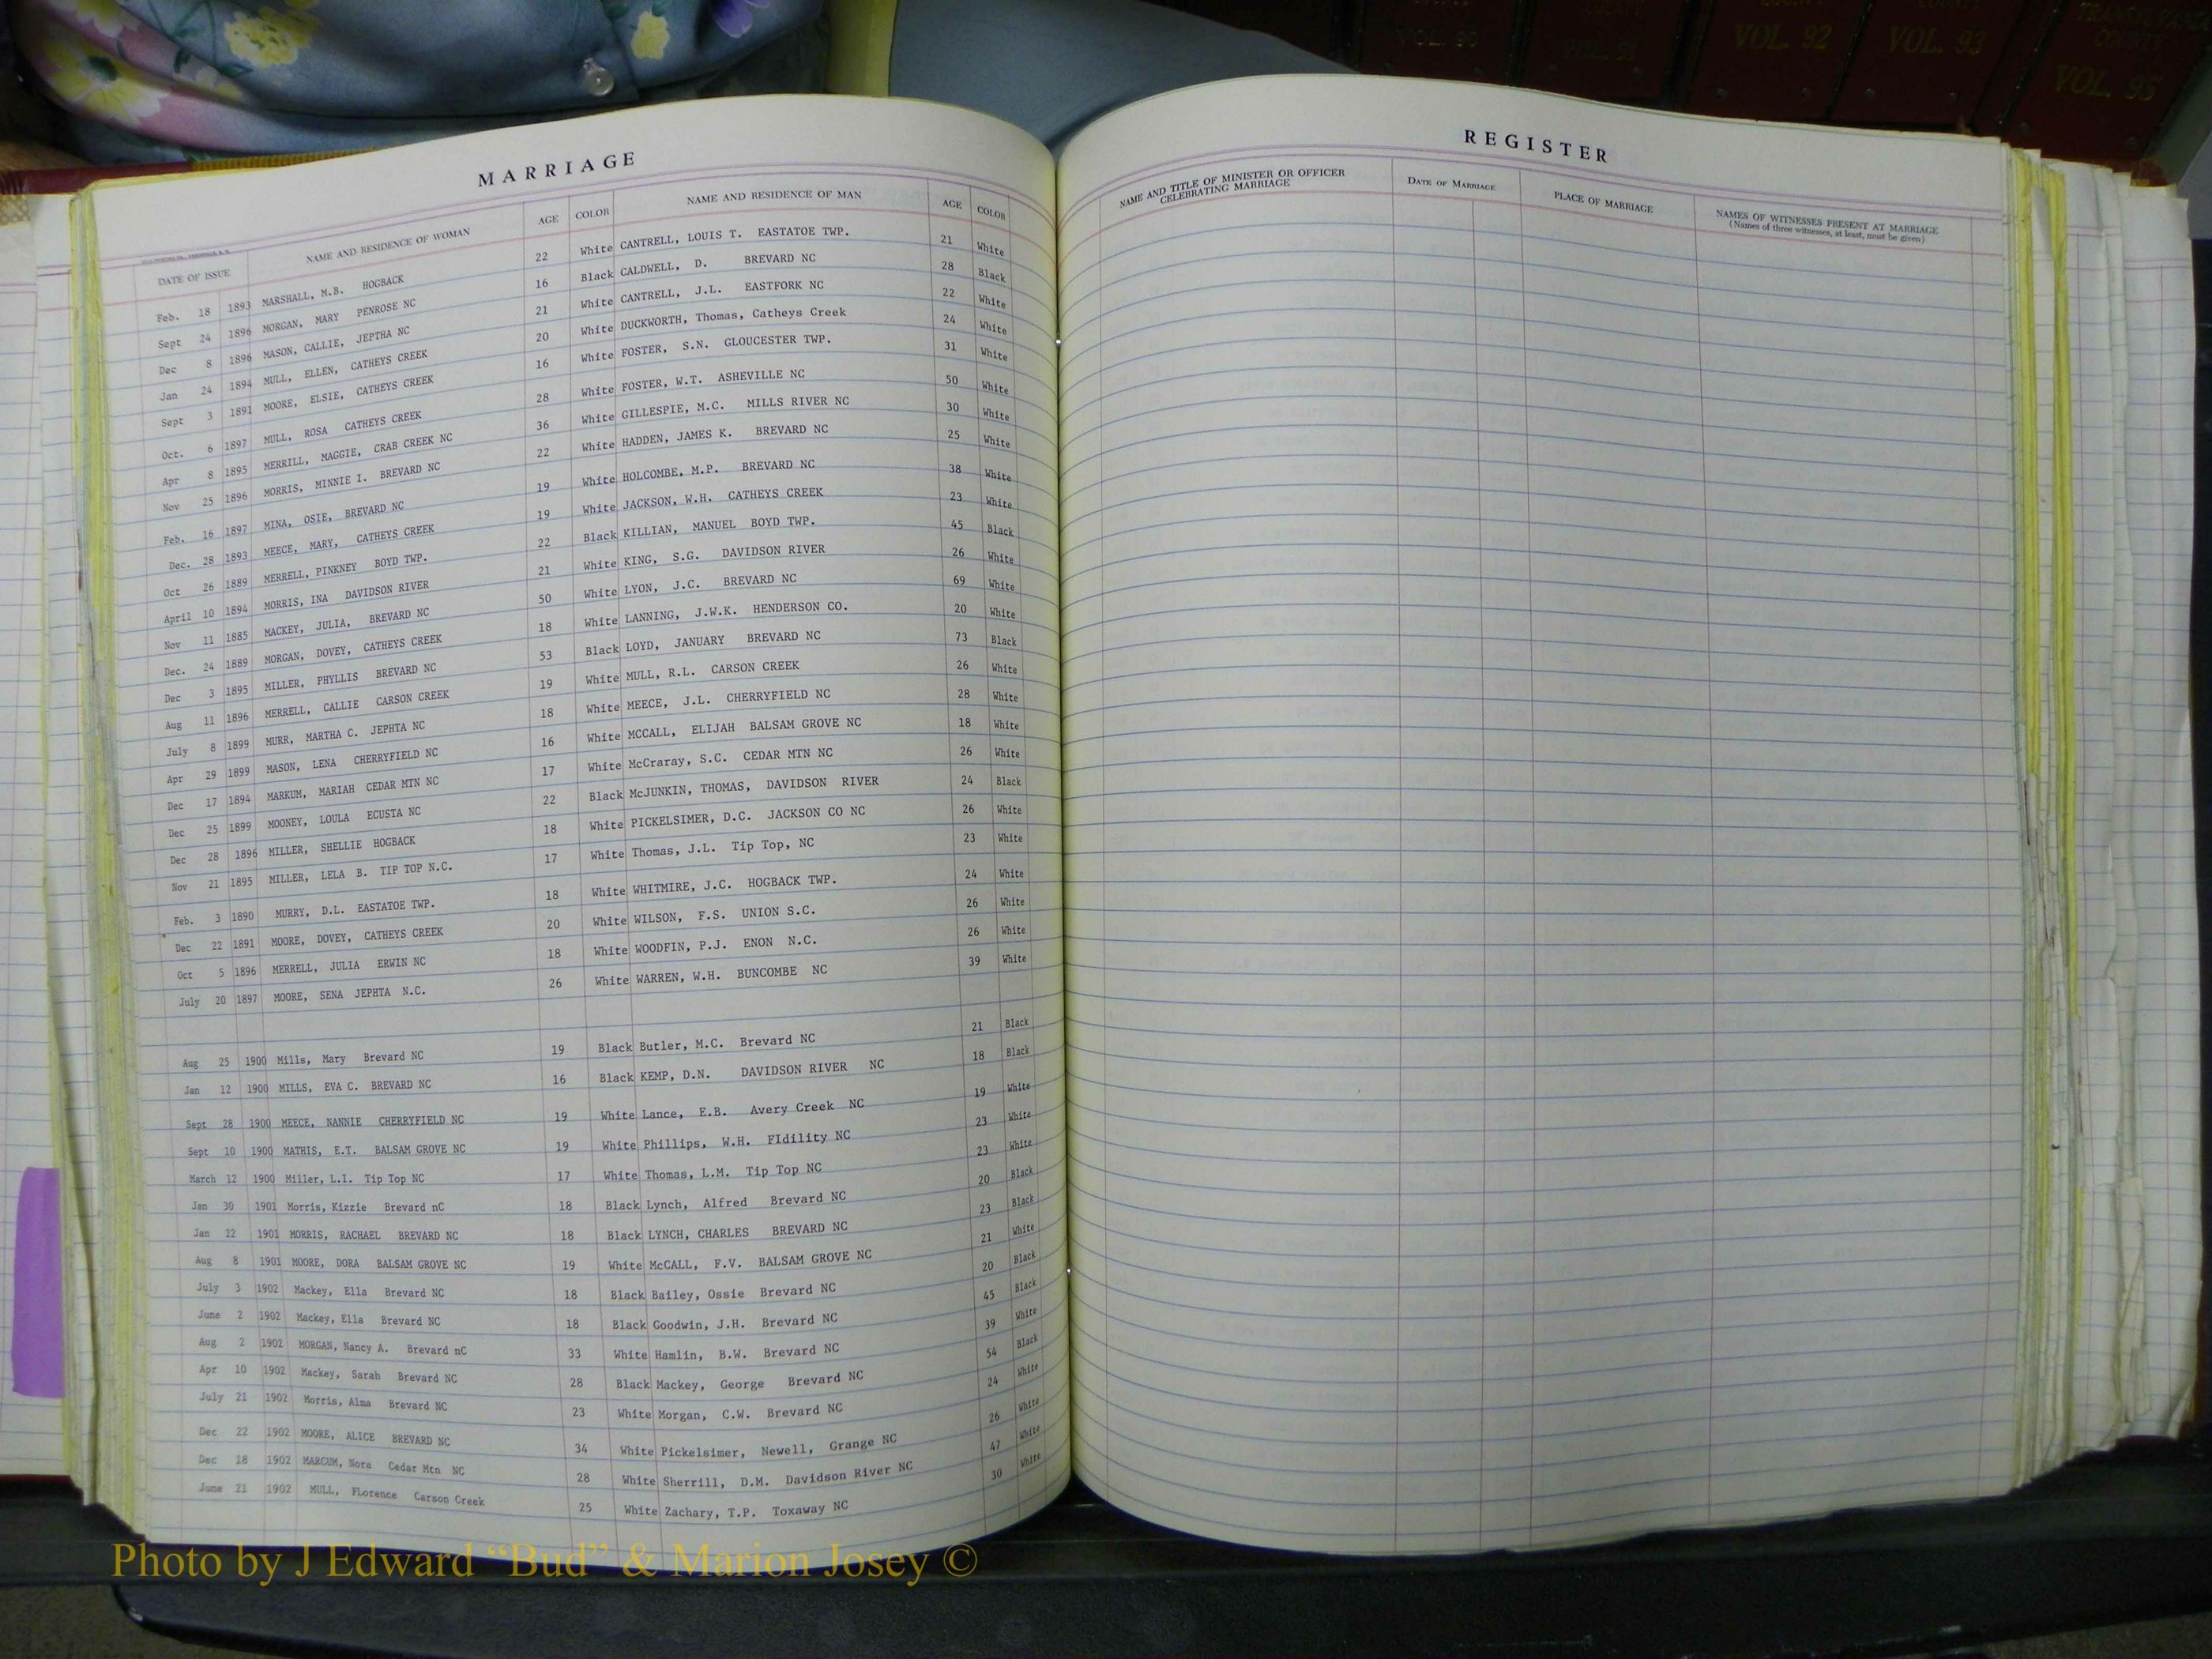 VOL. 90
VOL. 91
COUNTY
VOL. 92
COUNTY
VOL. 93
COUNTY
VOL. 95
MARRIAGE
DATE OF ISSUE NAME AND RESIDENCE OF WOMAN AGE COLOR NAME AND RESIDENCE OF MAN AGE COLOR
Feb. 18 1893 MARSHALL, M.B. HOGBACK 22 White CANTRELL, LOUIS T. EASTATOE TWP. 21 White
Sept 24 1896 MORGAN, MARY PENROSE NC 16 Black CALDWELL, D. BREVARD NC 28 Black
Dec 8 1896 MASON, CALLIE, JEPTHA NC 21 White CANTRELL, J.L. EASTFORK NC 22 White
Jan 24 1894 MULL, ELLEN, CATHEYS CREEK 20 White DUCKWORTH, Thomas, Catheys Creek 24 White
Sept 3 1891 MOORE, ELSIE, CATHEYS CREEK 16 White FOSTER, S.N. GLOUCESTER TWP. 31 White
Oct. 6 1897 MULL, ROSA CATHEYS CREEK 28 White FOSTER, W.T. ASHEVILLE NC 50 White
Apr 8 1895 MERRILL, MAGGIE, CRAB CREEK NC 36 White GILLESPIE, M.C. MILLS RIVER NC 30 White
Nov 25 1896 MORRIS, MINNIE I. BREVARD NC 22 White HADDEN, JAMES K. BREVARD NC 25 White
Feb. 16 1897 MINA, OSIE, BREVARD NC 19 White HOLCOMBE, M.P. BREVARD NC 38 White
Dec. 28 1893 MEECE, MARY, CATHEYS CREEK 19 White JACKSON, W.H. CATHEYS CREEK 23 White
Oct 26 1889 MERRELL, PINKNEY BOYD TWP. 22 Black KILLIAN, MANUEL BOYD TWP. 45 Black
April 10 1894 MORRIS, INA DAVIDSON RIVER 21 White KING, S.G. DAVIDSON RIVER 26 White
Nov 11 1885 MACKEY, JULIA, BREVARD NC 50 White LYON, J.C. BREVARD NC 69 White
Dec. 24 1889 MORGAN, DOVEY, CATHEYS CREEK 18 White LANNING, J.W.K. HENDERSON CO. 20 White
Dec 3 1895 MILLER, PHYLLIS BREVARD NC 53 Black LOYD, JANUARY BREVARD NC 73 Black
Aug 11 1896 MERRELL, CALLIE CARSON CREEK 19 White MULL, R.L. CARSON CREEK 26 White
July 8 1899 MURR, MARTHA C. JEPHTA NC 18 White MEECE, J.L. CHERRYFIELD NC 28 White
Apr 29 1899 MASON, LENA CHERRYFIELD NC 16 White MCCALL, ELIJAH BALSAM GROVE NC 18 White
Dec 17 1894 MARKUM, MARIAH CEDAR MTN NC 17 White McCraray, S.C. CEDAR MTN NC 26 White
Dec 25 1899 MOONEY, LOULA ECUSTA NC 22 Black McJUNKIN, THOMAS, DAVIDSON RIVER 24 Black
Dec 28 1896 MILLER, SHELLIE HOGBACK 18 White PICKELSIMER, D.C. JACKSON CO NC 26 White
Nov 21 1895 MILLER, LELA B. TIP TOP N.C. 17 White Thomas, J.L. Tip Top, NC 23 White
Feb. 3 1890 MURRY, D.L. EASTATOE TWP. 18 White WHITMIRE, J.C. HOGBACK TWP. 24 White
Dec 22 1891 MOORE, DOVEY, CATHEYS CREEK 20 White WILSON, F.S. UNION S.C. 26 White
Oct 5 1896 MERRELL, JULIA ERWIN NC 18 White WOODFIN, P.J. ENON N.C. 26 White
July 20 1897 MOORE, SENA JEPHTA N.C. 26 White WARREN, W.H. BUNCOMBE NC 39 White
Aug 25 1900 Mills, Mary Brevard NC 19 Black Butler, M.C. Brevard NC 21 Black
Jan 12 1900 MILLS, EVA C. BREVARD NC 16 Black KEMP, D.N. DAVIDSON RIVER NC 18 Black
Sept 28 1900 MEECE, NANNIE CHERRYFIELD NC 19 White Lance, E.B. Avery Creek NC 19 White
Sept 10 1900 MATHIS, E.T. BALSAM GROVE NC 19 White Phillips, W.H. FIdility NC 23 White
March 12 1900 Miller, L.I. Tip Top NC 17 White Thomas, L.M. Tip Top NC 23 White
Jan 30 1901 Morris, Kizzie Brevard nC 18 Black Lynch, Alfred Brevard NC 20 Black
Jan 22 1901 MORRIS, RACHAEL BREVARD NC 18 Black LYNCH, CHARLES BREVARD NC 23 Black
Aug 8 1901 MOORE, DORA BALSAM GROVE NC 19 White McCALL, F.V. BALSAM GROVE NC 21 White
July 3 1902 Mackey, Ella Brevard NC 18 Black Bailey, Ossie Brevard NC 20 Black
June 2 1902 Mackey, Ella Brevard NC 18 Black Goodwin, J.H. Brevard NC 45 Black
Aug 2 1902 MORGAN, Nancy A. Brevard nC 33 White Hamlin, B.W. Brevard NC 39 White
Apr 10 1902 Mackey, Sarah Brevard NC 28 Black Mackey, George Brevard NC 54 Black
July 21 1902 Morris, Alma Brevard NC 23 White Morgan, C.W. Brevard NC 24 White
Dec 22 1902 MOORE, ALICE BREVARD NC 34 White Pickelsimer, Newell, Grange NC 26 White
Dec 18 1902 MARCUM, Nora Cedar Mtn NC 28 White Sherrill, D.M. Davidson River NC 47 White
June 21 1902 MULL, FLorence Carson Creek 25 White Zachary, T.P. Toxaway NC 30 White
REGISTER
NAME AND TITLE OF MINISTER OR OFFICER CELEBRATING MARRIAGE DATE OF MARRIAGE PLACE OF MARRIAGE NAMES OF WITNESSES PRESENT AT MARRIAGE
(Names of three witnesses, at least, must be given)
Photo by J Edward “Bud” & Marion Josey ©